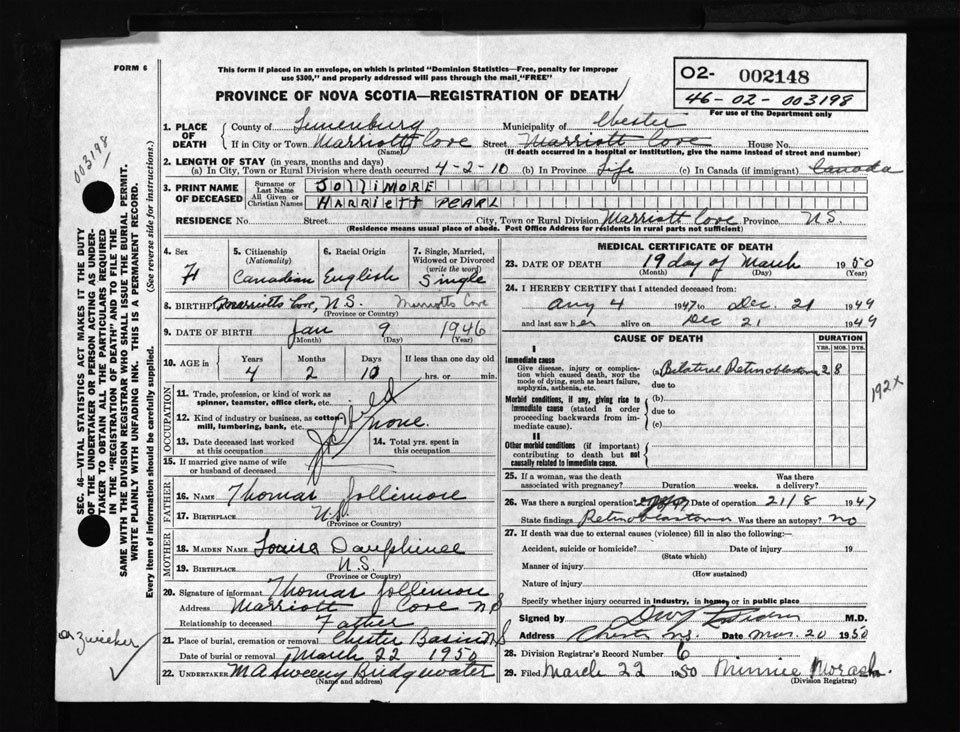 FORM 6
This form if placed in an envelope, on which is printed "Dominion Statistics—Free, penalty for improper
use $300," and properly addressed will pass through the mail "FREE"
PROVINCE OF NOVA SCOTIA—REGISTRATION OF DEATH
02- 002148
46-02-003198
For use of the Department only
003198
SEC. 46—VITAL STATISTICS ACT MAKES IT THE DUTY
OF THE UNDERTAKER OR PERSON ACTING AS UNDER-
TAKER TO OBTAIN ALL THE PARTICULARS REQUIRED
IN THE "REGISTRATION OF DEATH" AND TO FILE THE
SAME WITH THE DIVISION REGISTRAR WHO SHALL ISSUE THE BURIAL PERMIT.
WRITE PLAINLY WITH UNFADING INK. THIS IS A PERMANENT RECORD.
Every item of information should be carefully supplied. (See reverse side for instructions.)
1. PLACE OF DEATH
County of Lunenburg Municipality of Chester
If in City or Town Marriott Cove Street Marriott Cove House No.
(Name) (If death occurred in a hospital or institution, give the name instead of street and number)
2. LENGTH OF STAY (in years, months and days)
(a) In City, Town or Rural Division where death occurred 4-2-10 (b) In Province Life (c) In Canada (if immigrant) Canada
3. PRINT NAME OF DECEASED
Surname or Last Name JOLLIMORE
All Given or Christian Names HARRIETT PEARL
RESIDENCE No. Street City, Town or Rural Division Marriott Cove Province N.S.
(Residence means usual place of abode. Post Office Address for residents in rural parts not sufficient)
4. Sex F
5. Citizenship (Nationality) Canadian
6. Racial Origin English
7. Single, Married, Widowed or Divorced (write the word) Single
8. BIRTHPL Marriotts Cove, N.S. Marriotts Cove
(Province or Country)
9. DATE OF BIRTH Jan 9 1946
(Month) (Day) (Year)
10. AGE in Years Months Days If less than one day old
4 2 10 hrs. or min.
OCCUPATION
11. Trade, profession, or kind of work as
spinner, teamster, office clerk, etc.
12. Kind of industry or business, as cotton
mill, lumbering, bank, etc. None.
13. Date deceased last worked
at this occupation
14. Total yrs. spent in
this occupation
15. If married give name of wife
or husband of deceased
FATHER
16. NAME Thomas Jollimore
17. BIRTHPLACE N.S.
(Province or Country)
MOTHER
18. MAIDEN NAME Louise Dauphinee
19. BIRTHPLACE N.S.
(Province or Country)
20. Signature of informant Thomas Jollimore
Address Marriott Cove NS
Relationship to deceased Father
21. Place of burial, cremation or removal Chester Basin NS
Date of burial or removal March 22 1950
22. UNDERTAKER M A Sweeny Bridgwater
(Name and address)
Zwicker
MEDICAL CERTIFICATE OF DEATH
23. DATE OF DEATH 19 day of March 1950
(Month) (Day) (Year)
24. I HEREBY CERTIFY that I attended deceased from:
Aug 4 1947 to Dec. 21 1949
and last saw her alive on Dec 21 1949
CAUSE OF DEATH DURATION
YRS. MOS. DYS.
I
Immediate cause
Give disease, injury or complica-
tion which caused death, NOR the
mode of dying, such as heart failure,
asphyxia, asthenia, etc.
(a) Bilateral Retinoblastoma 2 8
due to
Morbid conditions, if any, giving rise to
immediate cause (stated in order
proceeding backwards from im-
mediate cause).
(b)
due to
(c)
192x
II
Other morbid conditions (if important)
contributing to death but not
causally related to immediate cause.
25. If a woman, was the death
associated with pregnancy? Duration weeks. Was there
a delivery?
26. Was there a surgical operation Date of operation 21/8 1947
State findings Retinoblastoma Was there an autopsy? no
27. If death was due to external causes (violence) fill in also the following:—
Accident, suicide or homicide? Date of injury 19
(State which)
Manner of injury
(How sustained)
Nature of injury
Specify whether injury occurred in Industry, in home, or in public place
Signed by M.D.
Address Chester NS. Date Mar. 20 1950
28. Division Registrar's Record Number 6
29. Filed March 22 1950 Minnie Morash.
(Division Registrar)